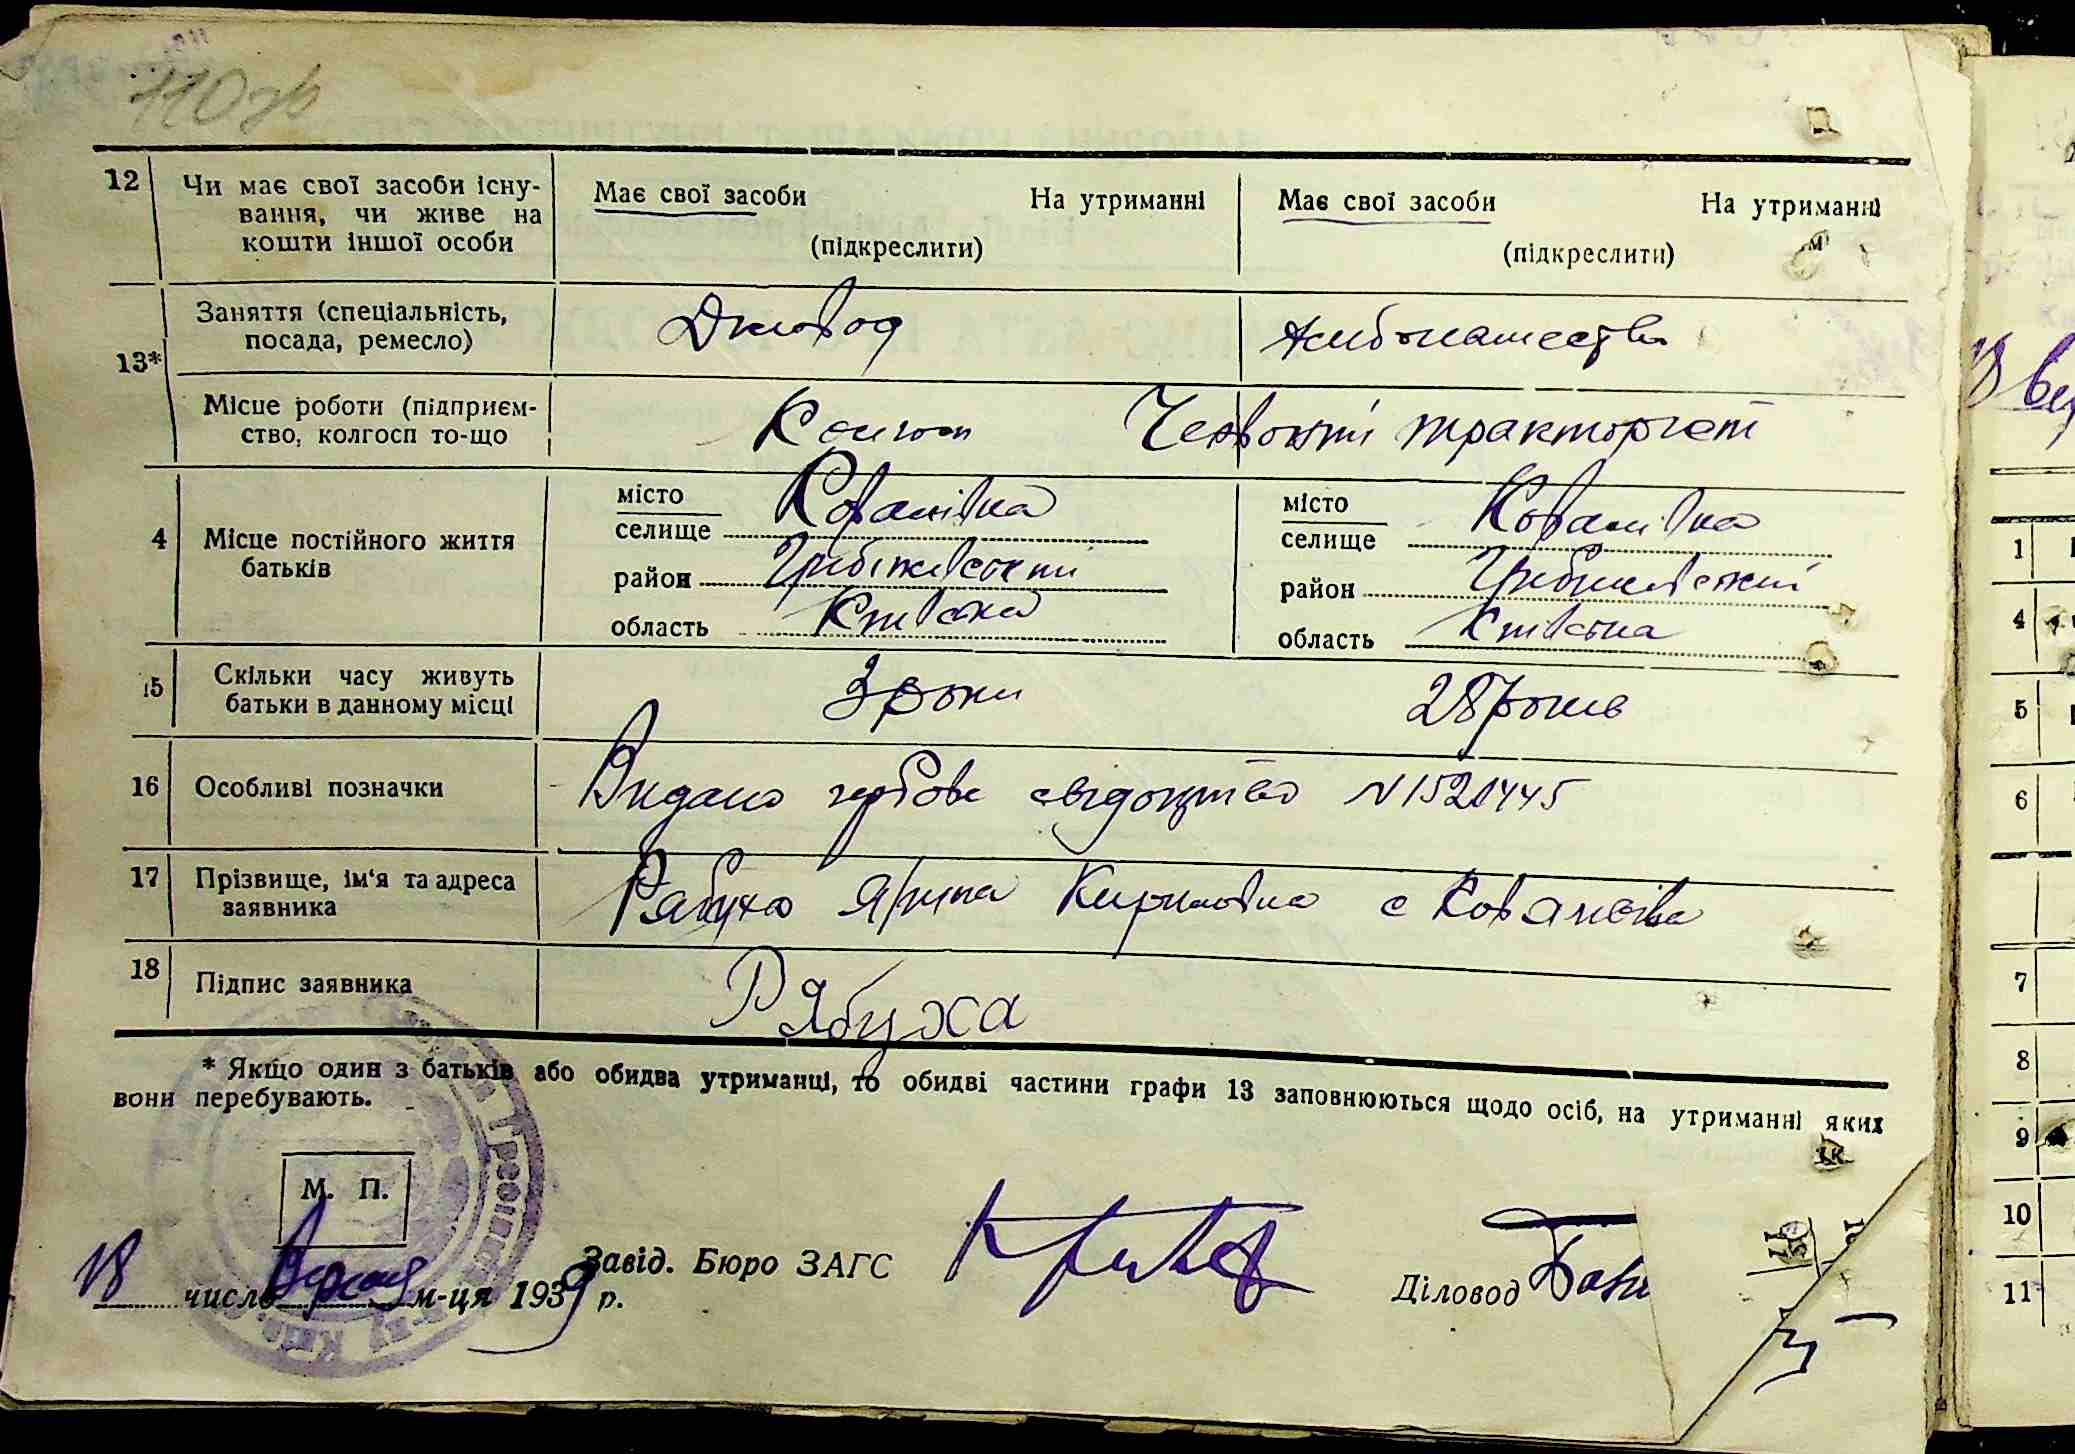 110 зв
12 Чи має свої засоби існу- Має свої засоби На утриманні Має свої засоби На утриманні
вання, чи живе на
кошти іншої особи (підкреслити) (підкреслити)
13* Заняття (спеціальність, Діловод хлібопашество
посада, ремесло)
Місце роботи (підприєм- Колгосп Червоний тракторист
ство, колгосп то-що
4 Місце постійного життя місто Кованівка місто Кованівка
батьків селище селище
район Гребінківський район Гребінківський
область Київська область Київська
15 Скільки часу живуть 3 роки 28 років
батьки в данному місці
16 Особливі позначки Видано гербове свідоцтво N 1521445
17 Прізвище, ім'я та адреса Рябуха Ярина Кириловна с Кованівка
заявника
18 Підпис заявника Рябуха
* Якщо один з батьків або обидва утриманці, то обидві частини графи 13 заповнюються щодо осіб, на утриманні яких
вони перебувають.
М. П.
18 число Вересня м-ця 1939 р.
Завід. Бюро ЗАГС
Діловод
1
4
5
6
7
8
9
10
11